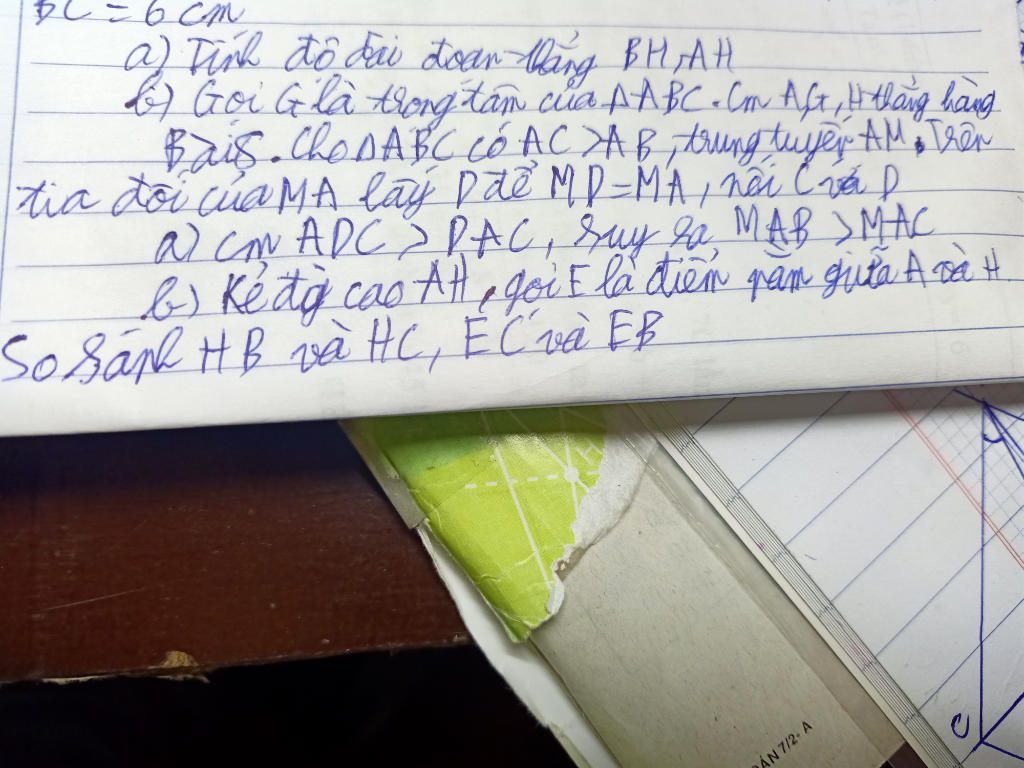 BC = 6 cm
a) Tính độ dài đoạn thẳng BH, AH
b) Gọi G là trọng tâm của ΔABC. Cm A,G,H thẳng hàng
Bài 5. Cho ΔABC có AC > AB, trung tuyến AM. Trên
tia đối của MA lấy D để MD = MA, nối C và D
a) cm ADC > DAC, suy ra MAB > MAC
b) Kẻ đg cao AH, gọi E là điểm nằm giữa A và H
So sánh HB và HC, EC và EB
C
ÁN 7/2- A